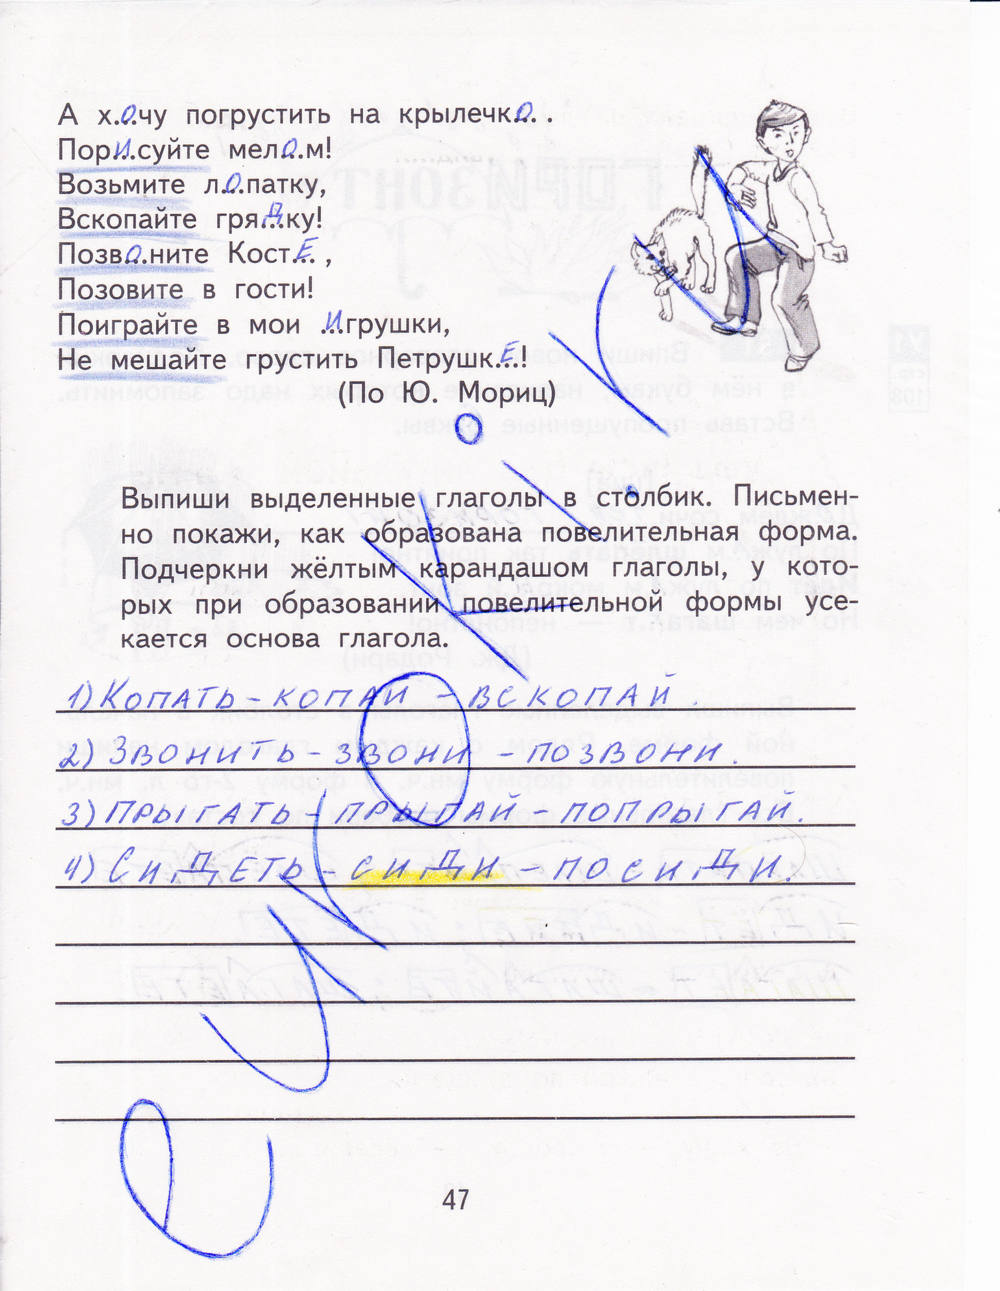 А х.о.чу погрустить на крылечко. .
Пори.суйте мело.м!
Возьмите л.о.патку,
Вскопайте грядку!
Позво.ните Косте. ,
Позовите в гости!
Поиграйте в мои игрушки,
Не мешайте грустить Петрушке..!
(По Ю. Мориц)
Выпиши выделенные глаголы в столбик. Письмен-
но покажи, как образована повелительная форма.
Подчеркни жёлтым карандашом глаголы, у кото-
рых при образовании повелительной формы усе-
кается основа глагола.
1) Копать - копай - вскопай.
2) Звонить - звони - позвони.
3) Прыгать - прыгай - попрыгай.
4) Сидеть - сиди - посиди.
47